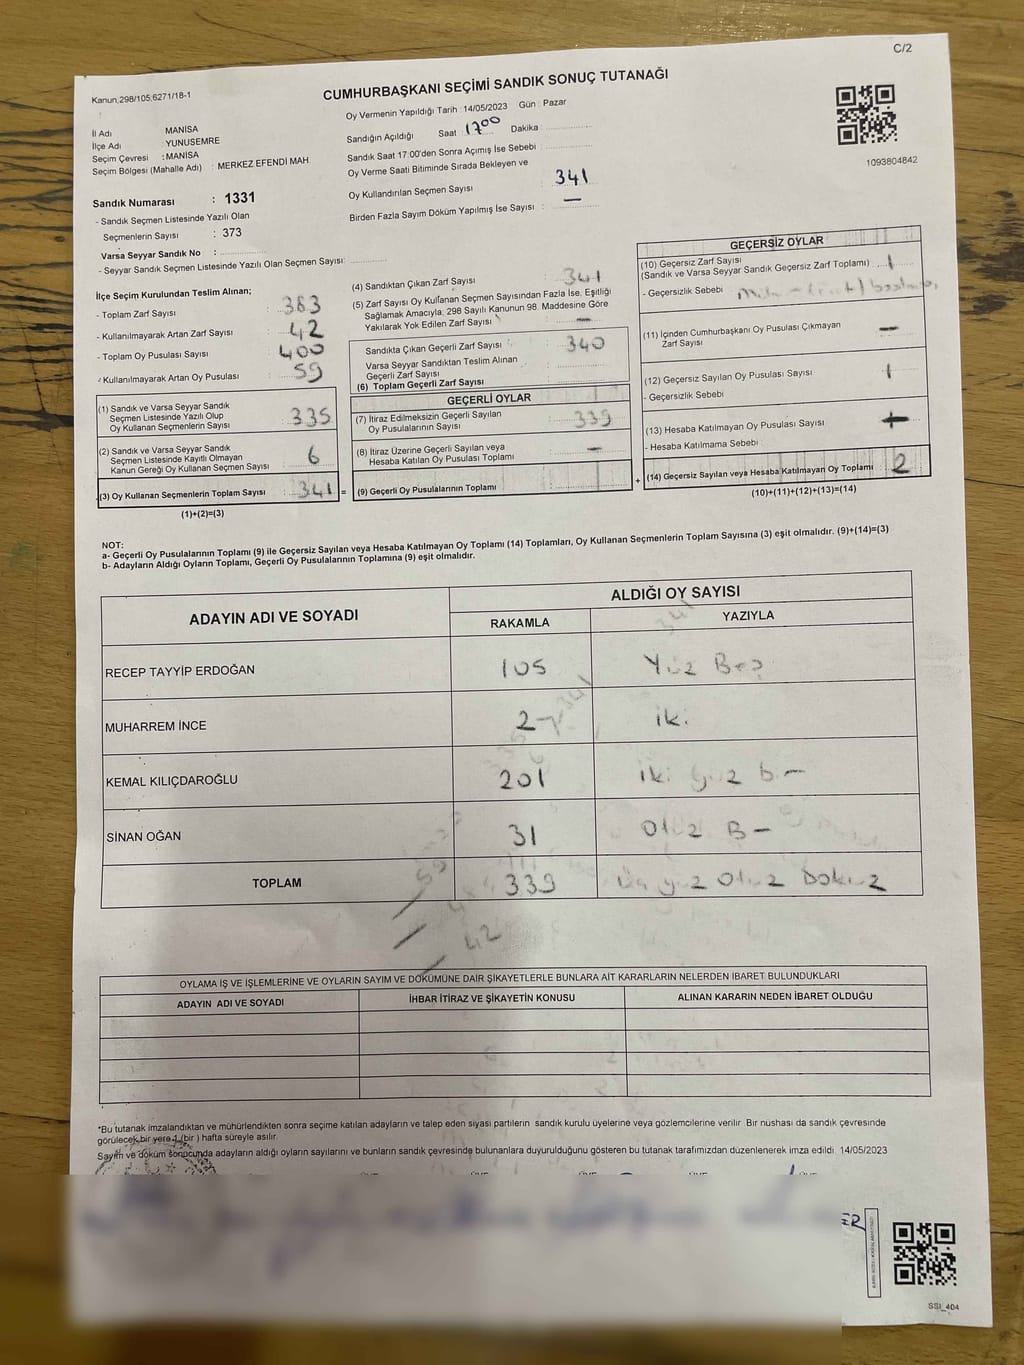 C/2
Kanun,298/105;6271/18-1
CUMHURBAŞKANI SEÇİMİ SANDIK SONUÇ TUTANAĞI
1093804842
İl Adı MANİSA
İlçe Adı : YUNUSEMRE
Seçim Çevresi : MANİSA
Seçim Bölgesi (Mahalle Adı) : MERKEZ EFENDİ MAH.
Sandık Numarası : 1331
- Sandık Seçmen Listesinde Yazılı Olan
Seçmenlerin Sayısı : 373
Varsa Seyyar Sandık No :
- Seyyar Sandık Seçmen Listesinde Yazılı Olan Seçmen Sayısı:
Oy Vermenin Yapıldığı Tarih : 14/05/2023 Gün : Pazar
Sandığın Açıldığı Saat 1700 Dakika :
Sandık Saat 17:00'den Sonra Açımış İse Sebebi :
Oy Verme Saati Bitiminde Sırada Bekleyen ve
Oy Kullandırılan Seçmen Sayısı 341
Birden Fazla Sayım Döküm Yapılmış İse Sayısı : —
İlçe Seçim Kurulundan Teslim Alınan;
- Toplam Zarf Sayısı : 383
- Kullanılmayarak Artan Zarf Sayısı : 42
- Toplam Oy Pusulası Sayısı : 400
- Kullanılmayarak Artan Oy Pusulası : 59
(1) Sandık ve Varsa Seyyar Sandık
Seçmen Listesinde Yazılı Olup
Oy Kullanan Seçmenlerin Sayısı : 335
(2) Sandık ve Varsa Seyyar Sandık
Seçmen Listesinde Kayıtlı Olmayan
Kanun Gereği Oy Kullanan Seçmen Sayısı : 6
(3) Oy Kullanan Seçmenlerin Toplam Sayısı : 341 =
(1)+(2)=(3)
(4) Sandıktan Çıkan Zarf Sayısı : 341
(5) Zarf Sayısı Oy Kullanan Seçmen Sayısından Fazla İse, Eşitliği
Sağlamak Amacıyla; 298 Sayılı Kanunun 98. Maddesine Göre
Yakılarak Yok Edilen Zarf Sayısı : —
Sandıkta Çıkan Geçerli Zarf Sayısı : 340
Varsa Seyyar Sandıktan Teslim Alınan
Geçerli Zarf Sayısı
(6) Toplam Geçerli Zarf Sayısı
GEÇERLİ OYLAR
(7) İtiraz Edilmeksizin Geçerli Sayılan
Oy Pusulalarının Sayısı : 339
(8) İtiraz Üzerine Geçerli Sayılan veya
Hesaba Katılan Oy Pusulası Toplamı : —
(9) Geçerli Oy Pusulalarının Toplamı : +
GEÇERSİZ OYLAR
(10) Geçersiz Zarf Sayısı
(Sandık ve Varsa Seyyar Sandık Geçersiz Zarf Toplamı) : 1
- Geçersizlik Sebebi :
(11) İçinden Cumhurbaşkanı Oy Pusulası Çıkmayan
Zarf Sayısı : —
(12) Geçersiz Sayılan Oy Pusulası Sayısı : 1
- Geçersizlik Sebebi
(13) Hesaba Katılmayan Oy Pusulası Sayısı :
- Hesaba Katılmama Sebebi :
(14) Geçersiz Sayılan veya Hesaba Katılmayan Oy Toplamı : 2
(10)+(11)+(12)+(13)=(14)
NOT:
a- Geçerli Oy Pusulalarının Toplamı (9) ile Geçersiz Sayılan veya Hesaba Katılmayan Oy Toplamı (14) Toplamları, Oy Kullanan Seçmenlerin Toplam Sayısına (3) eşit olmalıdır. (9)+(14)=(3)
b- Adayların Aldığı Oyların Toplamı, Geçerli Oy Pusulalarının Toplamına (9) eşit olmalıdır.
ADAYIN ADI VE SOYADI ALDIĞI OY SAYISI
RAKAMLA YAZIYLA
RECEP TAYYİP ERDOĞAN 105 Yüz Beş
MUHARREM İNCE 2 iki
KEMAL KILIÇDAROĞLU 201 iki yüz bir
SİNAN OĞAN 31 Otuz Bir
TOPLAM 339 Üç yüz Otuz Dokuz
42
OYLAMA İŞ VE İŞLEMLERİNE VE OYLARIN SAYIM VE DÖKÜMÜNE DAİR ŞİKAYETLERLE BUNLARA AİT KARARLARIN NELERDEN İBARET BULUNDUKLARI
ADAYIN ADI VE SOYADI İHBAR İTİRAZ VE ŞİKAYETİN KONUSU ALINAN KARARIN NEDEN İBARET OLDUĞU
*Bu tutanak imzalandıktan ve mühürlendikten sonra seçime katılan adayların ve talep eden siyasi partilerin sandık kurulu üyelerine veya gözlemcilerine verilir. Bir nüshası da sandık çevresinde
görülecek bir yere 1 (bir ) hafta süreyle asılır.
Sayım ve döküm sonucunda adayların aldığı oyların sayılarını ve bunların sandık çevresinde bulunanlara duyurulduğunu gösteren bu tutanak tarafımızdan düzenlenerek imza edildi. 14/05/2023
SSI_404